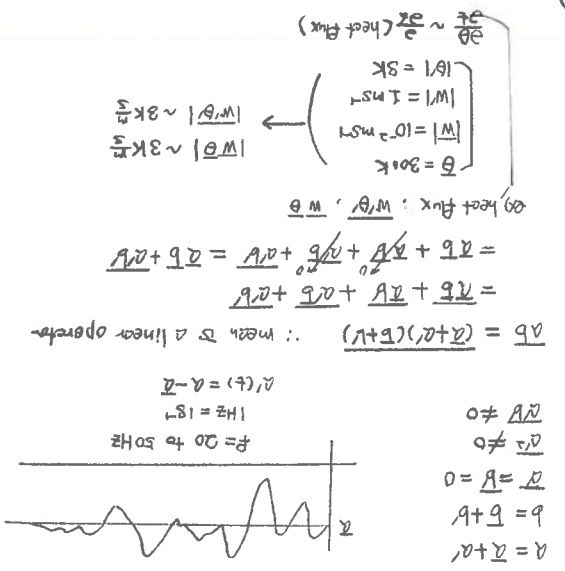 a = ā + a'
b = b̄ + b'
a̅'̅ = b̅'̅ = 0
a̅'̅²̅ ≠ 0
a̅'̅b̅'̅ ≠ 0
ā
f = 20 to 50 Hz
1Hz = 1s⁻¹
a'(t) = a - ā
a̅b̅ = (ā+a')(b̄+b') ∵ mean is a linear operator
= ā b̄ + ā b' + a' b̄ + a'b'
= ā b̄ + ā b' + a' b̄ + a'b' = ā b̄ + a'b'
eg) heat flux : w'θ', w̄ θ̄
θ̄ = 300K
|w̄| = 10⁻² ms⁻¹
|w'| = 1 ms⁻¹
|θ'| = 3K
|w̄ θ̄| ~ 3K m/s
|w'θ'| ~ 3K m/s
∂θ/∂t ~ ∂/∂z (heat flux)